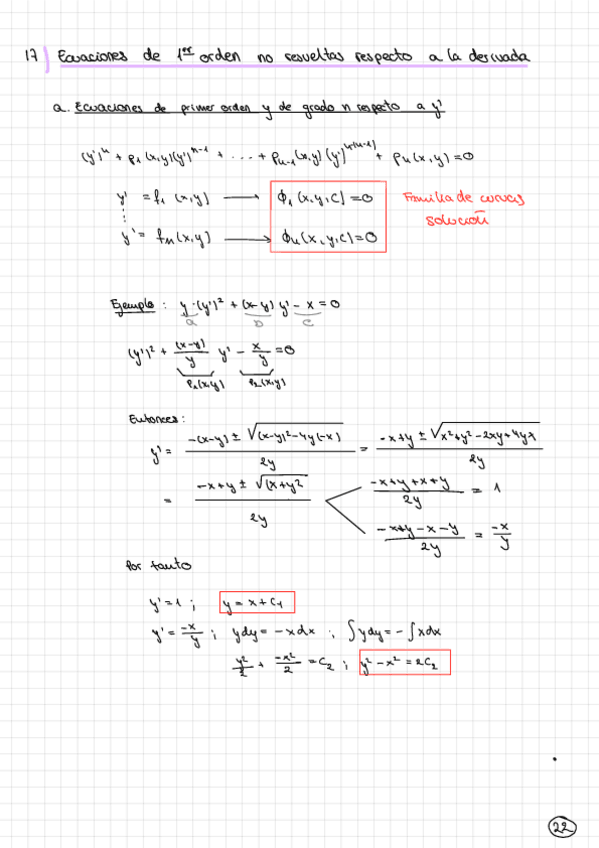 17 Ecuaciones de 1er orden no resueltas respecto a la derivada
a. Ecuaciones de primer orden y de grado n respecto a y'
(y')^n + p_1(x,y)(y')^{n-1} + ... + p_{n-1}(x,y)(y')^{n-(n-1)} + p_n(x,y) = 0
y' = f_1(x,y) → ϕ_1(x,y,C) = 0 Familia de curvas
⋮ solución
y' = f_n(x,y) → ϕ_n(x,y,C) = 0
Ejemplo: y·(y')² + (x-y) y' - x = 0
a b c
(y')² + (x-y)/y y' - x/y = 0
p_1(x,y) p_2(x,y)
Entonces:
y' = (-(x-y) ± √((x-y)² - 4y(-x)))/2y = (-x+y ± √(x²+y²-2xy+4yx))/2y
= (-x+y ± √((x+y²))/2y (-x+y+x+y)/2y = 1
(-x+y-x-y)/2y = -x/y
Por tanto
y' = 1 ; y = x + C_1
y' = -x/y ; ydy = -xdx ; ∫ydy = -∫xdx
y²/2 + -x²/2 = C_2 ; y² - x² = 2C_2
22